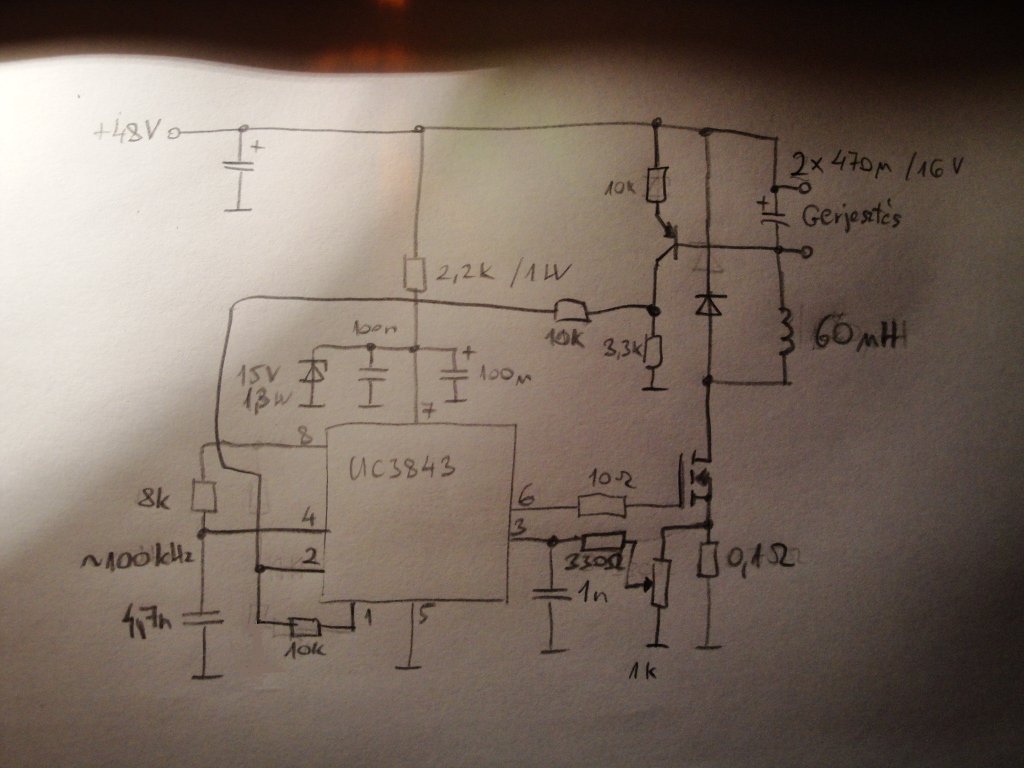 +48V
+
2x 470µ /16V
10k
+
Gerjesztés
2,2k /1W
100n
10k
3,3k
60µH
15V
1,3W
+
100µ
7
8
UC3843
8k
6
10Ω
4
3
~100kHz
2
330Ω
0,1Ω
4,7n
1n
1
5
10k
1k